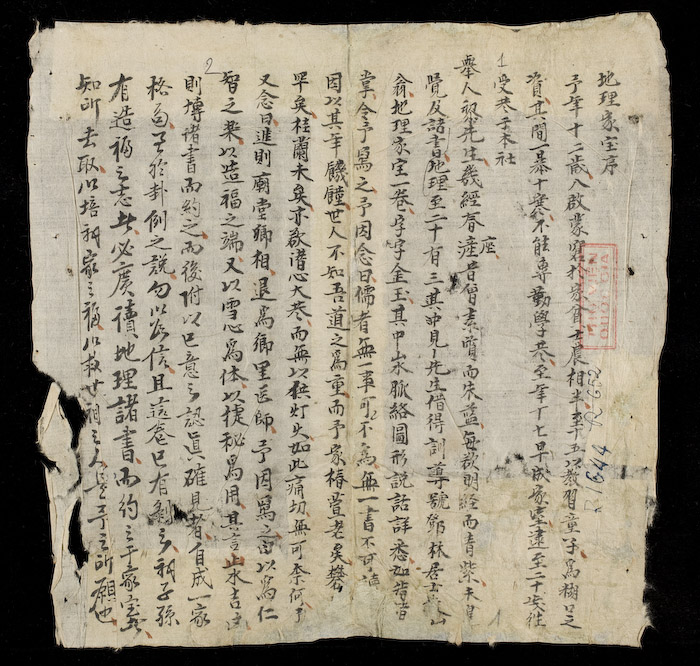 地理家宝序
予年十二歲入啟蒙窓於家官士農相半至十五以教習童子為糊口之
資其間一暴十寒不能專勤學至年十七早成家室遠至二十癸往
受恭于本社
舉人祝先生幾經春座產昔曾素嘗而朱藍每欲明經而青紫未
覽及諸書地理至二十有三其中見先生借得訓導號鄧林居士山
翁地理家宝一卷字字金玉其中山水脈絡圖形說話詳悉如指諸
掌令予寫之予因念曰儒者無一事可不為無一書不可讀
因以其年饑饉世人不知吾道之為重而予家椿萱老矣
罕矣桂蘭未矣亦欲潛心大巷而無以供灯火如此痛切無可奈何予
又念曰進則廟堂卿相退為鄉里医師予因寫之留以為仁
智之樂以造福之端又以雪心為体以捷秘為用其言山水吉凶
則博諸書而約之而後附以己意之認眞確見者自成一家
格局至於卦例之說勿以為信且這卷已有剩之子孫
有造福之志者必廣讀地理諸書而約之于家宝
知所去取以培家之福以救世間之人是予之所願也
1
2
R.1644
R.652
1